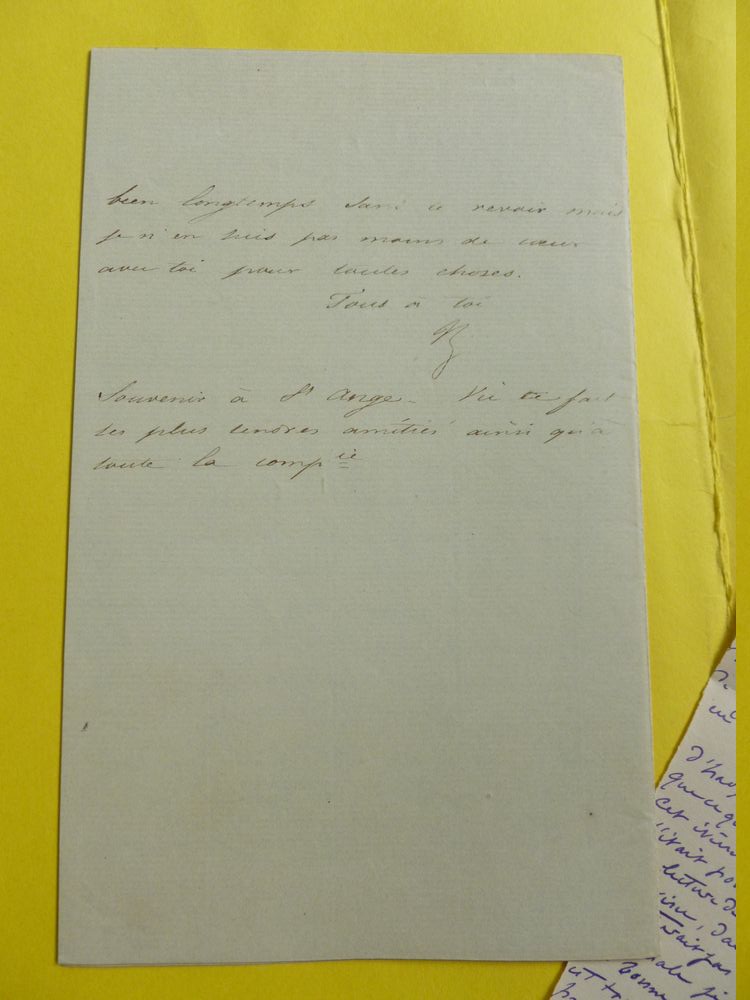 bien longtemps sans te revoir mais
je n'en suis pas moins de cœur
avec toi pour toutes choses.
Tous à toi
Souvenir à St Ange. Vic te fait
ses plus tendres amitiés ainsi qu'à
toute la compie
d'hav
que ce q
cet
était po
lecture d